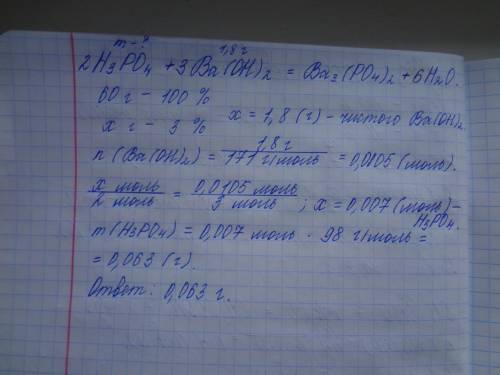 m - ? 1,8 г
2H₃PO₄ + 3Ba(OH)₂ = Ba₃(PO₄)₂ + 6H₂O.
60 г – 100 %
x г – 3 % x = 1,8 (г) – чистого Ba(OH)₂.
n (Ba(OH)₂) = 1,8 г / 171 г/моль = 0,0105 (моль).
x моль / 2 моль = 0,0105 моль / 3 моль ; x = 0,007 (моль) – H₃PO₄.
m (H₃PO₄) = 0,007 моль · 98 г/моль =
= 0,063 (г).
Ответ: 0,063 г.